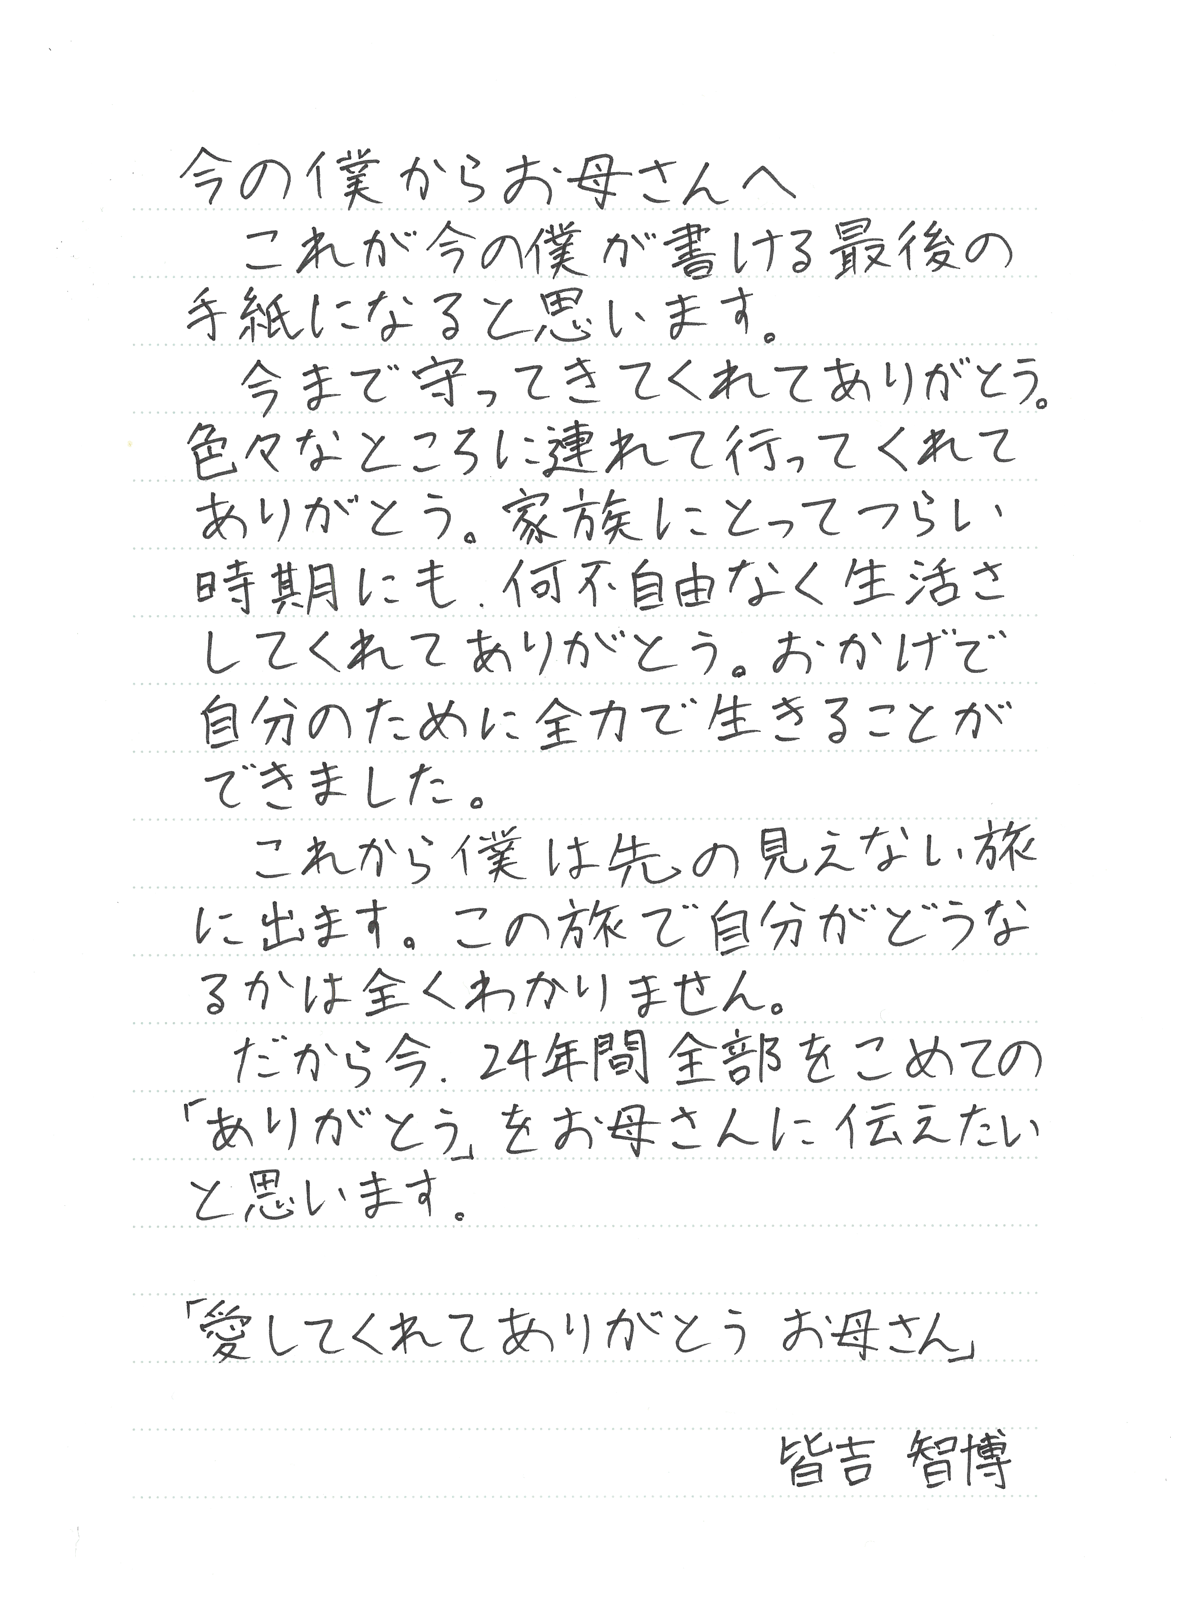 今の僕からお母さんへ
これが今の僕が書ける最後の
手紙になると思います。
今まで守ってきてくれてありがとう。
色々なところに連れて行ってくれて
ありがとう。家族にとってつらい
時期にも、何不自由なく生活さ
してくれてありがとう。おかげで
自分のために全力で生きることが
できました。
これから僕は先の見えない旅
に出ます。この旅で自分がどうな
るかは全くわかりません。
だから今、24年間全部をこめての
「ありがとう」をお母さんに伝えたい
と思います。
「愛してくれてありがとう お母さん」
皆吉 智博